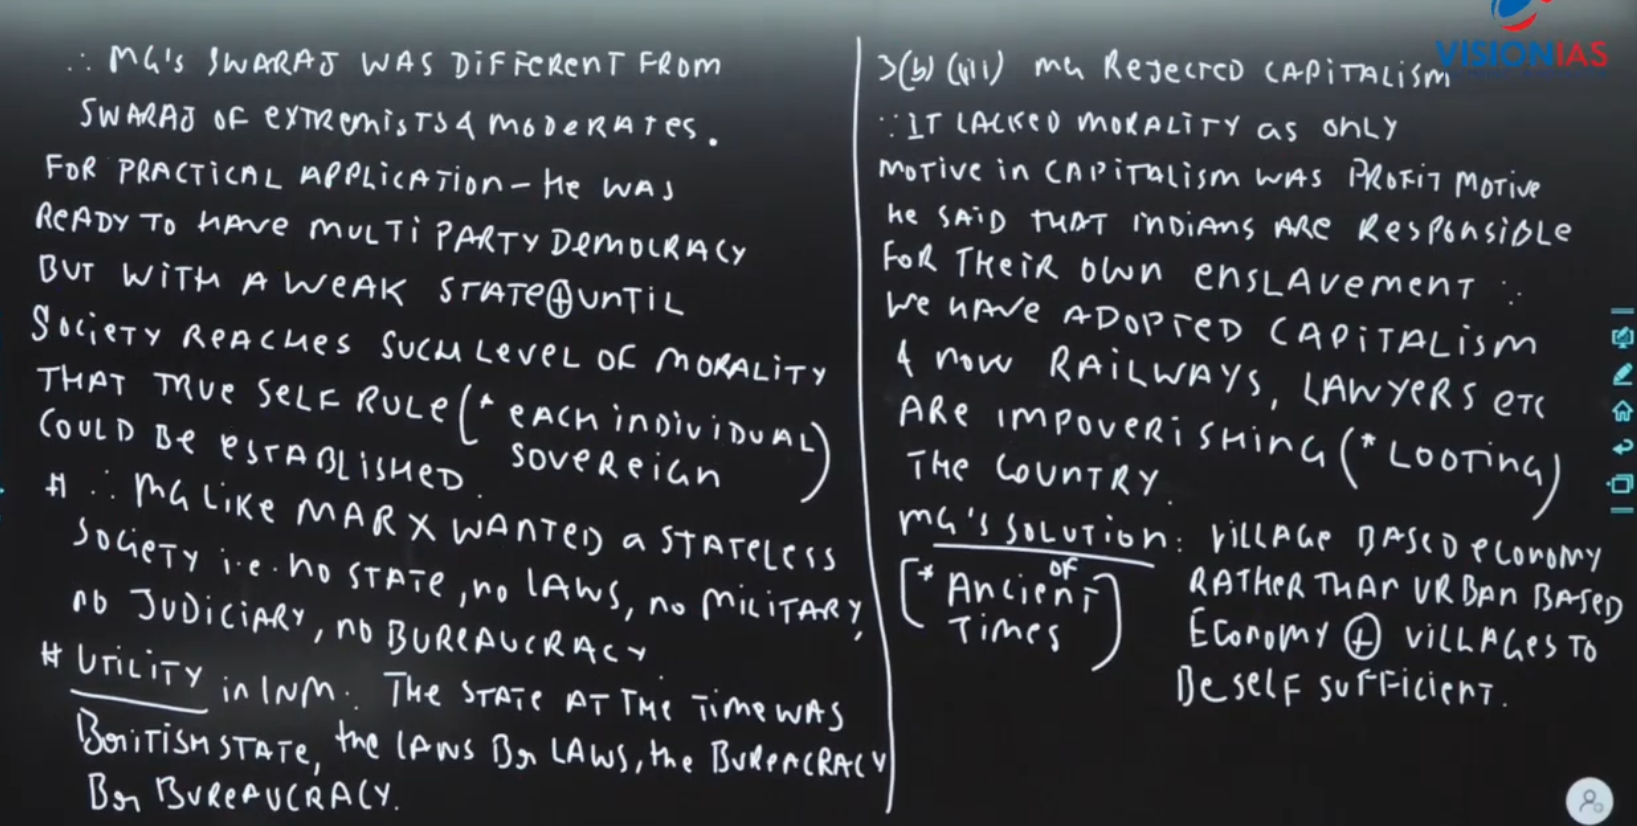 ∴ MG's SWARAJ WAS DIFFERENT FROM
SWARAJ OF EXTREMISTS & MODERATES.
FOR PRACTICAL APPLICATION - HE WAS
READY TO HAVE MULTI PARTY DEMOCRACY
BUT WITH A WEAK STATE ⊕ UNTIL
SOCIETY REACHES SUCH LEVEL OF MORALITY
THAT TRUE SELF RULE (* EACH INDIVIDUAL
SOVEREIGN)
COULD BE ESTABLISHED.
# ∴ MG LIKE MARX WANTED A STATELESS
SOCIETY i.e. NO STATE, NO LAWS, NO MILITARY,
NO JUDICIARY, NO BUREAUCRACY
# UTILITY in INM. THE STATE AT THE TIME WAS
BRITISH STATE, the LAWS Br LAWS, the BUREACRACY
Br BUREAUCRACY.
VISIONIAS
3(b) (iii) MG REJECTED CAPITALISM
∵ IT LACKED MORALITY as ONLY
MOTIVE in CAPITALISM WAS PROFIT MOTIVE
he SAID THAT INDIANS ARE RESPONSIBLE
FOR THEIR OWN ENSLAVEMENT ∵
WE HAVE ADOPTED CAPITALISM
& NOW RAILWAYS, LAWYERS ETC
ARE IMPOVERISHING (* LOOTING)
THE COUNTRY.
MG's SOLUTION: VILLAGE BASED ECONOMY
(* OF ANCIENT TIMES)
RATHER THAN URBAN BASED
ECONOMY ⊕ VILLAGES TO
BE SELF SUFFICIENT.